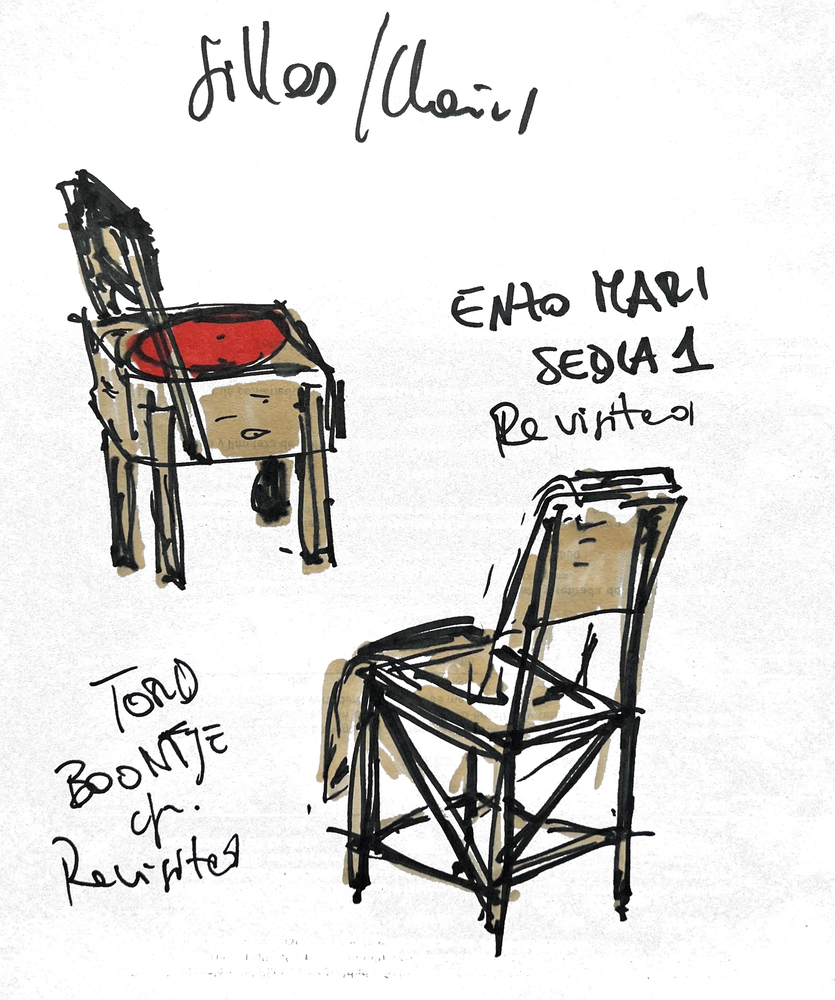 Gilles / Chairs
ENZO MARI
SEDIA 1
Revisited
TORD
BOONTJE
ch.
Revisited